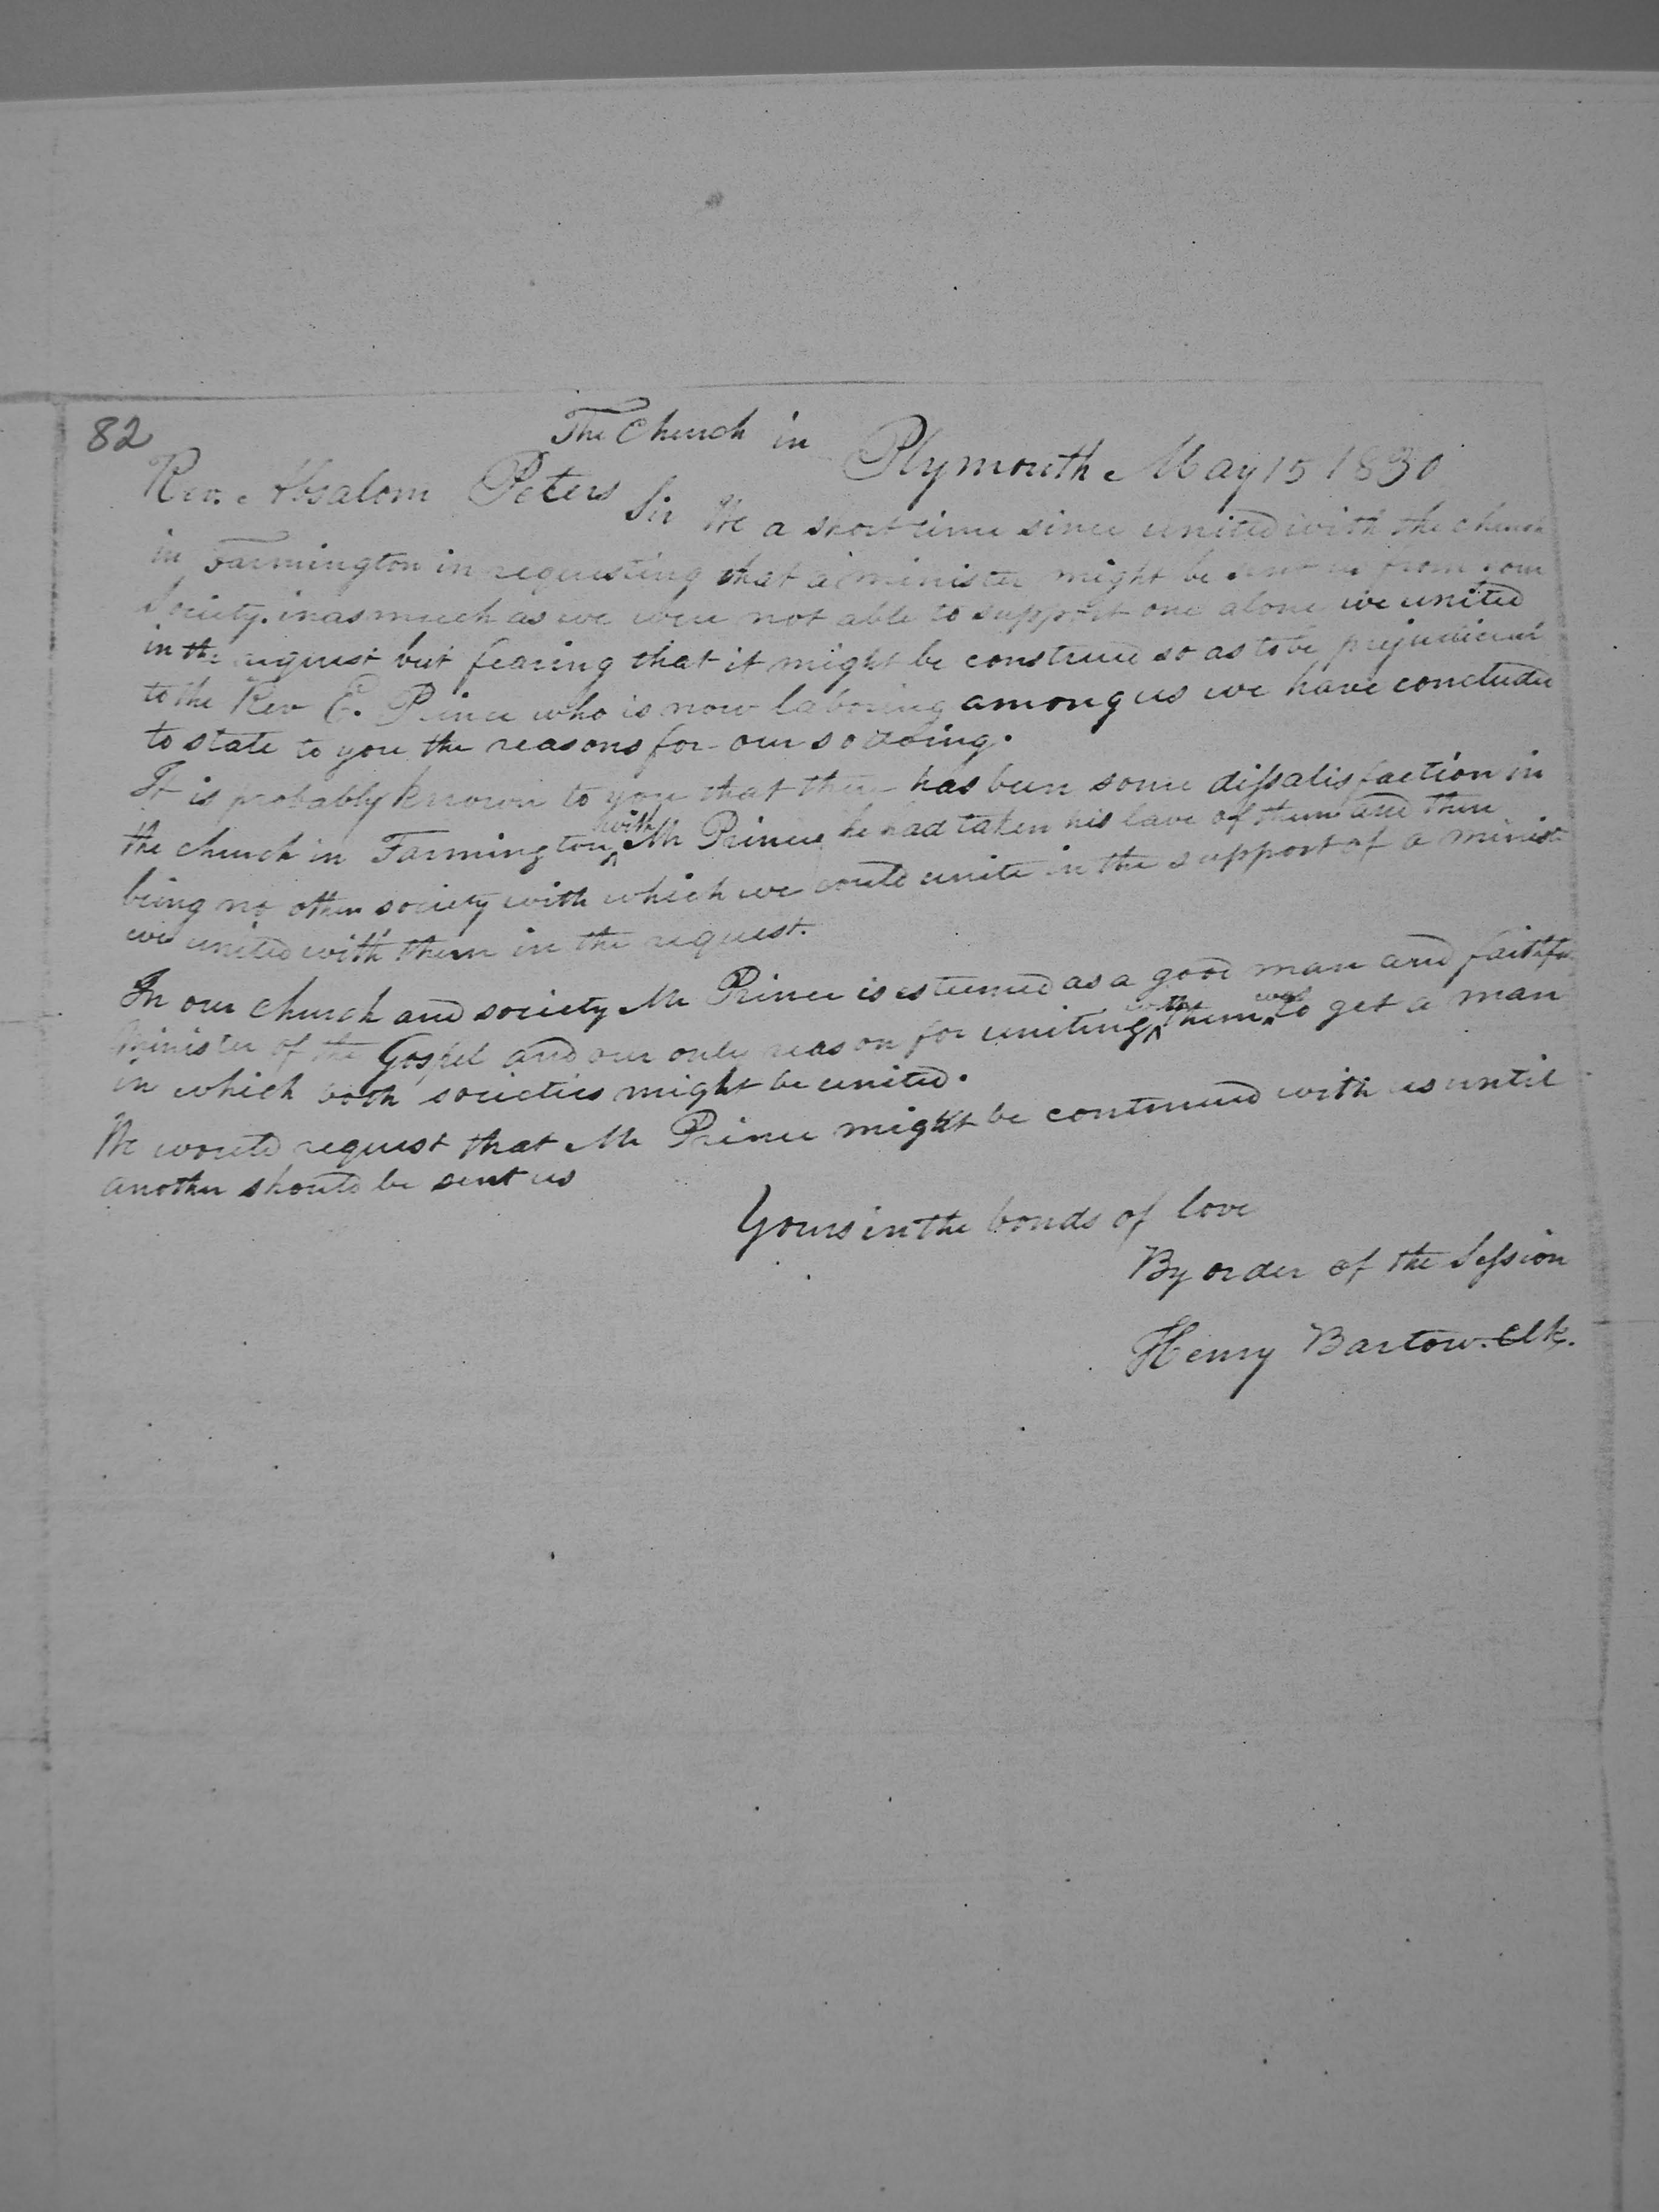 82
The Church in Plymouth May 15 1830
Rev. Absalom Peters Sir We a short time since united with the church
in Farmington in requesting that a minister might be sent us from your
Society. inasmuch as we were not able to support one alone we united
in the request but fearing that it might be construed so as to be prejudicial
to the Rev E. Prince who is now laboring among us we have concluded
to state to you the reasons for our so doing.
It is probably known to you that there has been some dissatisfaction in
the church in Farmington with Mr Prince he had taken his lave of them and there
being no other society with which we could unite in the support of a minist
we united with them in the request.
In our church and society Mr Prince is esteemed as a good man and faithfu
Minister of the Gospel and our only reason for uniting with them was to get a man
in which both societies might be united.
We would request that Mr Prince might be continued with us until
another should be sent us
Yours in the bonds of love
By order of the Session
Henry Bartow. Clk.